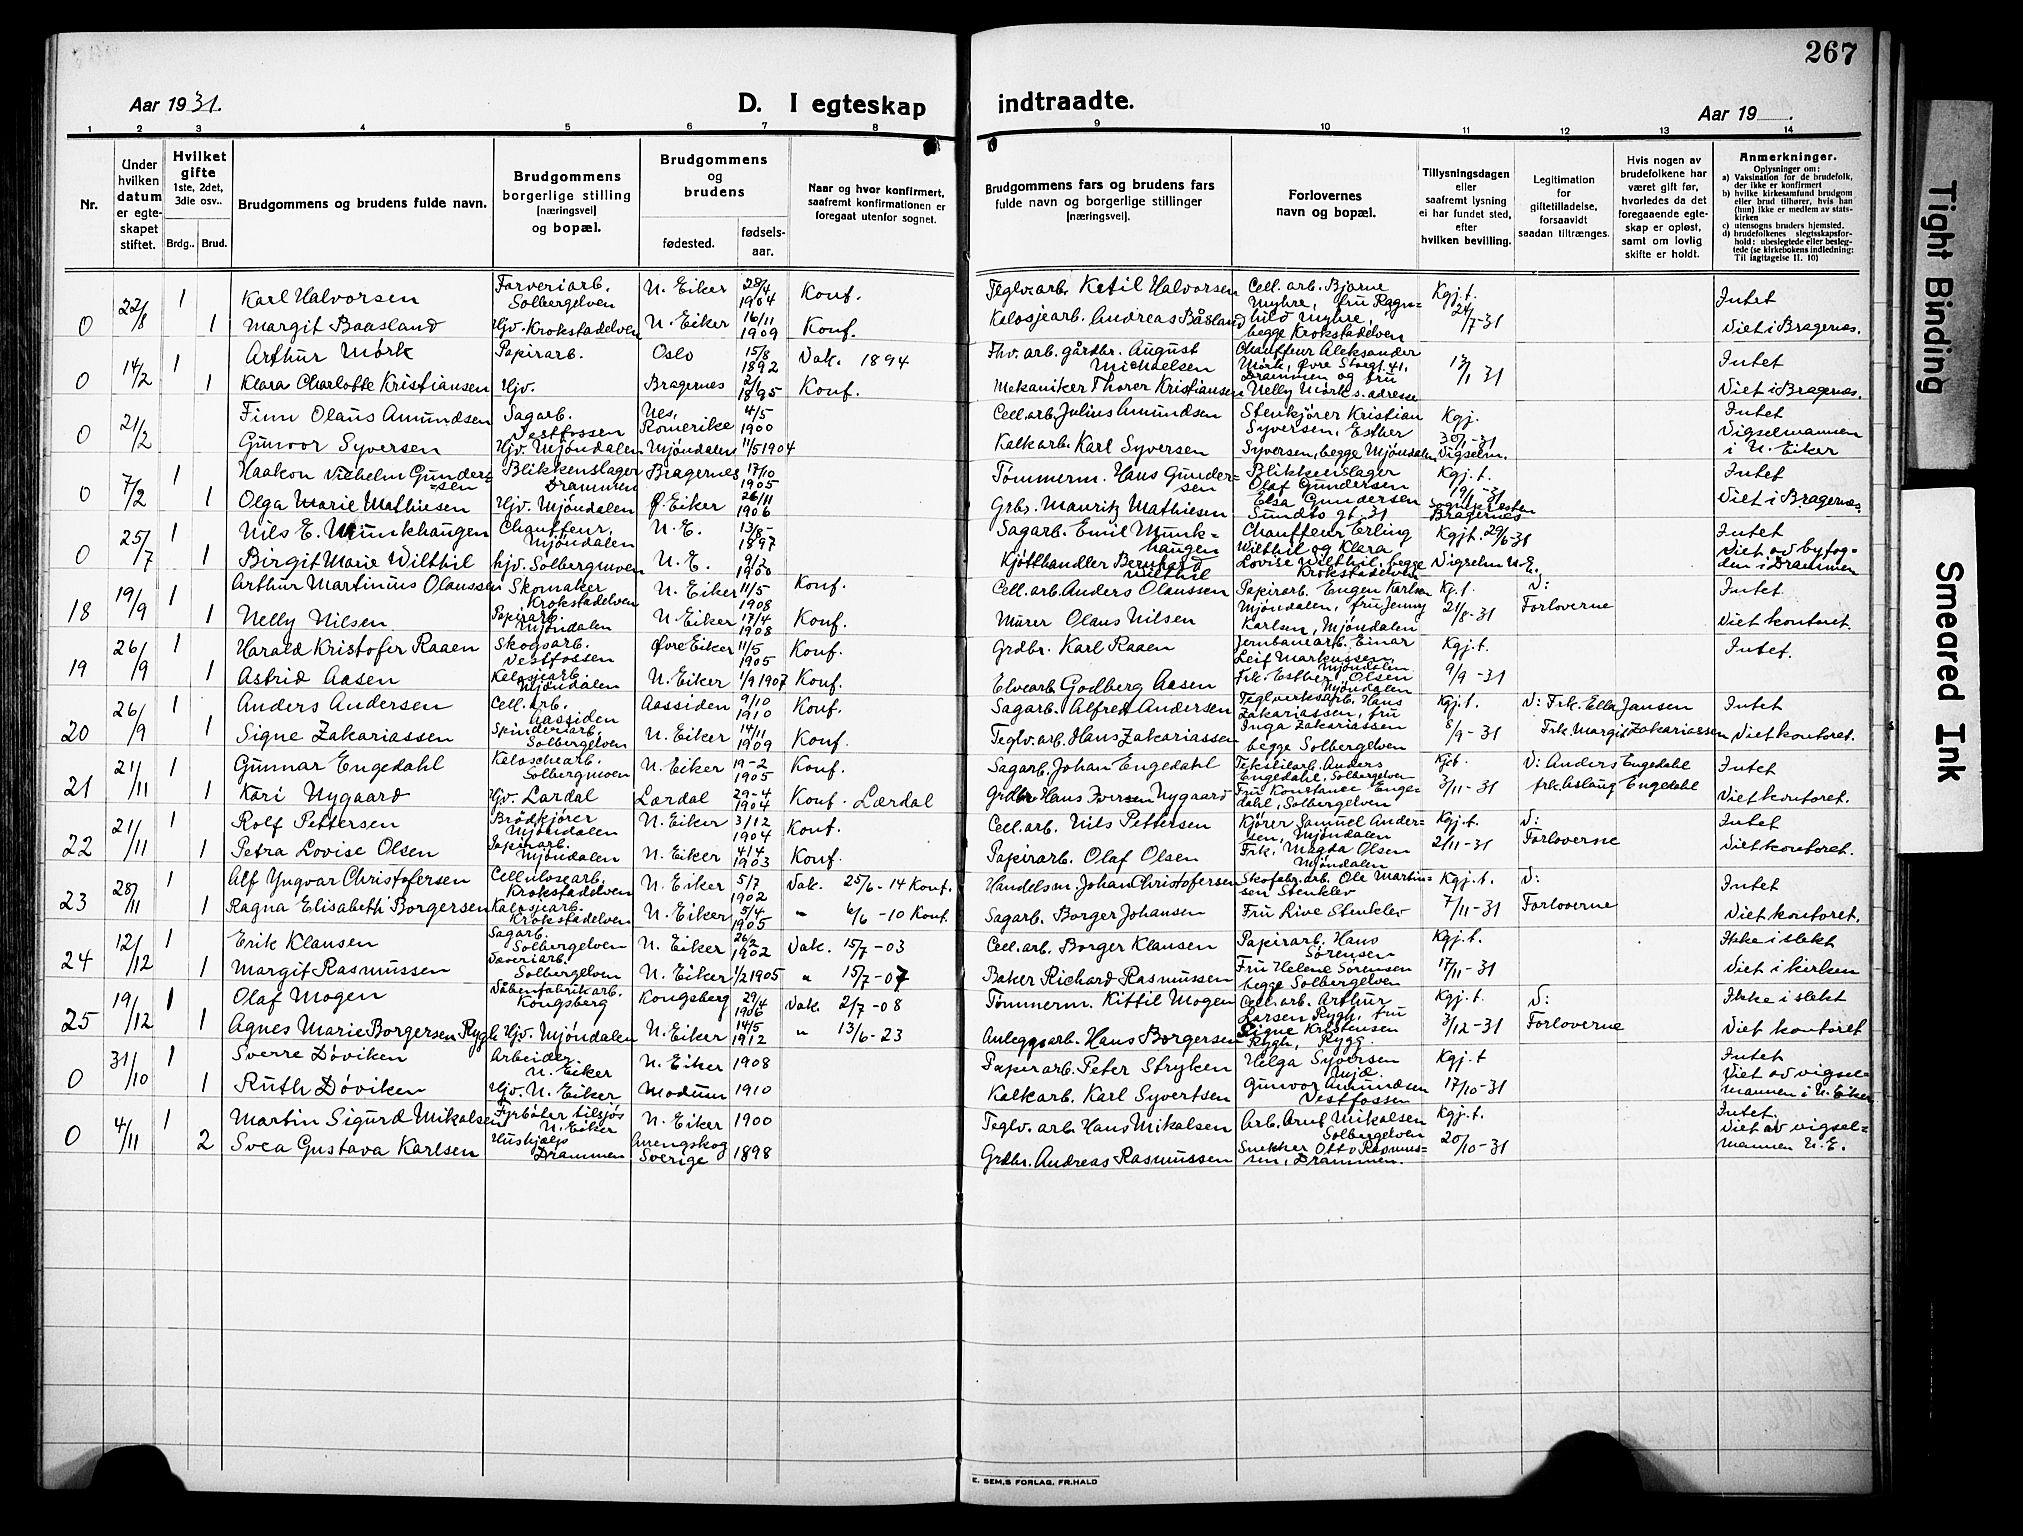 267
Aar 1931.
D. I egteskap indtraadte.
Aar 19 .
1 2 3 4 5 6 7 8 9 10 11 12 13 14
Nr.
Under hvilken datum er egteskapet stiftet.
Hvilket gifte 1ste, 2det, 3die osv..
Brdg.. Brud.
Brudgommens og brudens fulde navn.
Brudgommens borgerlige stilling (næringsvei) og bopæl.
Brudgommens og brudens
fødested.
fødselsaar.
Naar og hvor konfirmert, saafremt konfirmationen er foregaat utenfor sognet.
Brudgommens fars og brudens fars fulde navn og borgerlige stillinger (næringsvei).
Forlovernes navn og bopæl.
Tillysningsdagen eller saafremt lysning ei har fundet sted, efter hvilken bevilling.
Legitimation for giftetilladelse, forsaavidt saadan tiltrænges.
Hvis nogen av brudefolkene har været gift før, hvorledes da det foregaaende egteskap er opløst, samt om lovlig skifte er holdt.
Anmerkninger.
Oplysninger om:
a) Vaksination for de brudefolk, der ikke er konfirmert
b) hvilke kirkesamfund brudgom eller brud tilhører, hvis han (hun) ikke er medlem av statskirken
c) utensogns bruders hjemsted.
d) brudefolkenes slegtsskapsforhold: ubeslegtede eller beslegtede (se kirkebokens indledning: Til iagttagelse II. 10)
0 22/8 1 Karl Halvorsen Farveriarb. Solbergelven N. Eiker 25/4 1904 Konf. Teglv.arb. Ketil Halvorsen Cell. arb. Bjarne Myhre, fru Ragnhild Myhre, begge Krokstadelven Kgj.t. 24/7-31 Intet
1 Margit Baasland Hjv. Krokstadelven N. Eiker 16/11 1909 Konf. Kelosjearb. Andreas Båsland Viet i Bragernes.
0 14/2 1 Arthur Mørk Papirarb. Oslo 15/8 1892 Vak. 1894 Fhv. arb. gårdbr. August Michaelsen Chauffeur Aleksander Mørk, Øvre Storgt. 41, Drammen og fru Nelly Mørk s. adresse 13/1 31 Intet
1 Klara Charlotte Kristiansen Hjv. Bragernes 2/1 1895 Konf. Mekaniker Thorer Kristiansen Viet i Bragernes.
0 21/2 Finn Olaus Amundsen Sagarb. Vestfossen Nes, Romerike 4/5 1900 Cell. arb. Julius Amundsen Stenkjører Kristian Syversen, Esther Syversen, begge Mjøndalen Kgj. 30/1-31 Vigselm. Intet
Gunvor Syversen Hjv. Mjøndalen Mjøndalen 11/5 1904 Kalkarb. Karl Syversen Vigselmannen i N. Eiker
0 7/2 1 Haakon Vilhelm Gundersen Blikkenslager Drammen Bragernes 17/10 1905 Tømmerm. Hans Gundersen Blikkenslager Olaf Gundersen Elsa Gundersen Sundbo gt. 31 Kgj.t. 19/1-31 Sognepresten Bragernes Intet
1 Olga Marie Mathiesen Hjv. Mjøndalen Ø. Eiker 26/11 1906 Grbr. Mauritz Mathiesen Viet i Bragernes.
0 25/7 1 Nils E. Munkhaugen Chauffeur, Mjøndalen N. E. 13/8 1897 Sagarb. Emil Munkhaugen Chauffeur Erling Wilthil og Klara Lovise Wilthil, begge Krokstadelven Kgjt. 29/6-31 Vigselm N. E. Intet
1 Birgit Marie Wilthil hjv. Solbergmoen N. E. 9/2 1900 Kjøtthandler Bernhard Wilthil Viet av byfogden i Drammen
18 19/9 1 Arthur Martinius Olaussen Skomaker Krokstadelven N. Eiker 11/5 1908 Konf. Cell. arb. Anders Olaussen Papirarb. Eugen Karlsen Mjøndalen, fru Jenny Karlsen, Mjøndalen Kg.t. 21/8-31 V: Forloverne Intet
1 Nelly Nilsen Papirarb. Mjøndalen N. Eiker 17/4 1908 Konf. Murer Olaus Nilsen Viet kontoret.
19 26/9 1 Harald Kristofer Raaen Skogsarb. Vestfossen Øvre Eiker 11/5 1905 Konf. Grdbr. Karl Raaen Jernbanearb. Einar Leif Markussen, Mjøndalen Frk. Esther Olsen Mjøndalen Kgj.t. 9/9-31 Intet.
1 Astrid Aasen Kelosjearb. Mjøndalen N. Eiker 1/9 1907 Konf. Elvearb Godberg Aasen
20 26/9 1 Anders Andersen Cell. arb. Aassiden Aassiden 9/10 1910 Konf. Sagarb. Alfred Andersen Teglverksarb. Hans Zakariassen, fru Inga Zakariassen begge Solbergelven Kgj.t. 8/9-31 V: Frk. Ella Jansen Intet
1 Signe Zakariassen Spinderiarb. Solbergelven N. Eiker 14/11 1909 Konf. Teglv. arb. Hans Zakariassen Frk. Margit Zakariassen Viet kontoret.
21 21/11 1 Gunnar Engedahl Keloschearb. Solbergmoen N. Eiker 19-2 1905 Konf. Sagarb. Johan Engedahl Anders Engedahl, Solbergelven Fru Konstanse Engedahl, Solbergelven Kgjt. 3/11-31 V: Anders Engedahl Intet
1 Kari Nygaard Hjv. Lærdal Lærdal 29-4 1904 Konf. Lærdal Grdbr Hans Iversen Nygaard Frk. Aslaug Engedahl Viet kontoret.
22 21/11 1 Rolf Pettersen Brødkjører Mjøndalen N. Eiker 3/12 1904 Konf. Cell. arb. Nils Pettersen Kjører Samuel Andersen, Mjøndalen Frk. Magda Olsen Mjøndalen Kgj.t. 2/11-31 V: Forloverne Intet
1 Petra Lovise Olsen Papirarb. Mjøndalen N. Eiker 4/4 1903 Konf. Papirarb. Olaf Olsen Viet kontoret.
23 28/11 1 Alf Yngvar Christofersen Cellulosearb. Krokstadelven N. Eiker 5/7 1902 Vak. 25/6-14 Konf. Handelsm. Johan Christofersen Skofabr. arb. Ole Martinsen Stenklev Fru Live Stenklev Kgj.t. 7/11-31 V: Forloverne Intet
1 Ragna Elisabeth Borgersen Kalosjearb. Krokstadelven N. Eiker 5/4 1905 " 6/6-10 Konf. Sagarb. Borger Johansen Viet kontoret.
24 12/12 1 Erik Klausen Sagarb. Solbergelven N. Eiker 26/2 1902 Vak. 15/7-03 Cell. arb. Borger Klausen Papirarb. Hans Sørensen Fru Helene Sørensen begge Solbergelven Kgj.t. 17/11-31 Ikke i slekt
1 Margit Rasmussen Væveriarb. Solbergelven N. Eiker 1/2 1905 " 15/7-07 Baker Richard Rasmussen Viet i kirken
25 19/12 1 Olaf Mogen Våbenfabrikarb. Kongsberg Kongsberg 29/4 1906 Vak. 2/7-08 Tømmerm. Kittil Mogen Cell. arb. Arthur Larsen Rygh, fru Signe Kristensen Rygh, Rygg. Kgj.t. 3/12-31 V: Forloverne Ikke i slekt
1 Agnes Marie Borgersen Rygh Hjv. Mjøndalen N. Eiker 14/5 1912 " 13/6-23 Anleggsarb. Hans Borgersen Viet kontoret
0 31/10 1 Sverre Døviken Arbeider N. Eiker N. Eiker 1908 Papirarb. Peter Stryken Helga Syversen Mjø. Gunvor Amundsen Vestfossen Kgj.t 17/10-31 Intet
1 Ruth Døviken Hjv. N. Eiker Modum 1910 Kalkarb. Karl Syvertsen Viet av vigselmannen i N. Eiker
0 4/11 1 Martin Sigurd Mikalsen Fyrbøter tilsjøs N. Eiker N. Eiker 1900 Teglv. arb. Hans Mikalsen Arb. Arnt Mikalsen Solbergelven Snekker Otto Rasmussen, Drammen. Kgj.t. 20/10-31 Intet.
2 Svea Gustava Karlsen Hushjelp Drammen Anengskog Sverige 1898 Grdbr. Andreas Rasmussen Viet av vigselmannen N. E.
E. SEM,S FORLAG, FR.HALD
Tight Binding
Smeared Ink